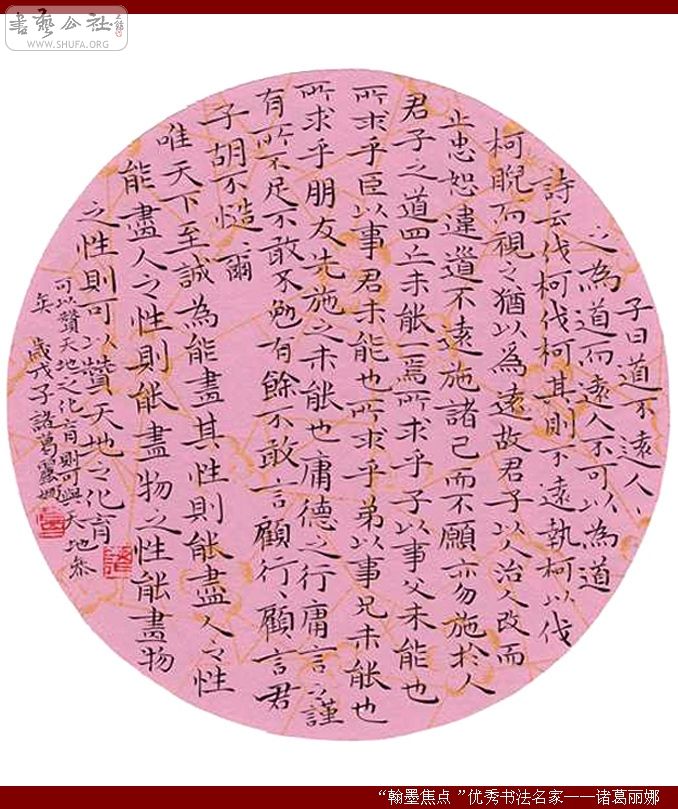 書藝公社
WWW.SHUFA.ORG
子曰道不遠人〻
之為道而遠人不可以為道
詩云伐柯伐柯其則不遠執柯以伐
柯睨而視之猶以為遠故君子以人治人改而
止忠恕違道不遠施諸己而不願亦勿施於人
君子之道四丘未能一焉所求乎子以事父未能也
所求乎臣以事君未能也所求乎弟以事兄未能也
所求乎朋友先施之未能也庸德之行庸言之謹
有所不足不敢不勉有餘不敢言顧行〻顧言君
子胡不慥〻爾
唯天下至誠為能盡其性則能盡人之性
能盡人之性則能盡物之性能盡物
之性則可以贊天地之化育
可以贊天地之化育則可與天地參
矣 歲戊子諸葛麗娜
“翰墨焦点 ”优秀书法名家——诸葛丽娜